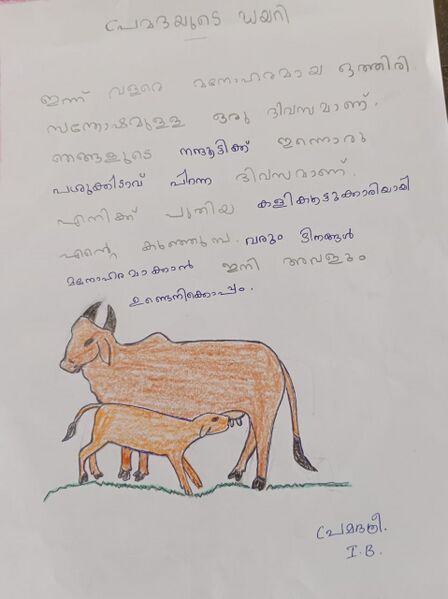 പ്രേമദയുടെ ഡയറി
ഇന്ന് വളരെ മനോഹരമായ ഒത്തിരി
സന്തോഷമുള്ള ഒരു ദിവസമാണ്.
ഞങ്ങളുടെ നന്ദൂട്ടിക്ക് ഇന്നൊരു
പശുക്കിടാവ് പിറന്ന ദിവസമാണ്.
എനിക്ക് പുതിയ കളിക്കൂട്ടുക്കാരിയായി
എന്റെ കുഞ്ഞൂസ്. വരും ദിനങ്ങൾ
മനോഹരമാക്കാൻ ഇനി അവളും
ഉണ്ടെനിക്കൊപ്പം.
പ്രേമദശ്രീ.
I.B.